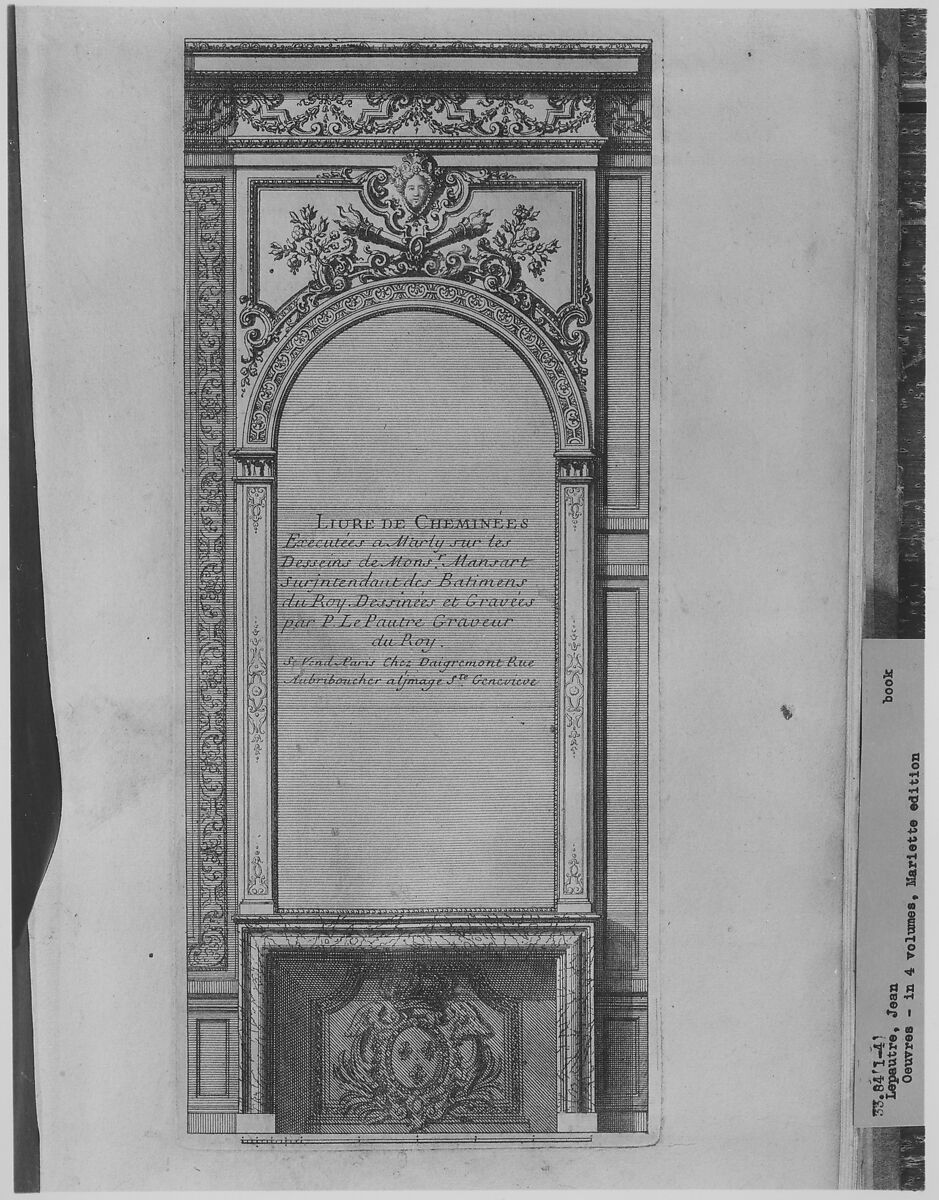 LIURE DE CHEMINÉES
Exécutées a Marly sur les
Desseins de Monsr. Mansart
Surjntendant des Batimens
du Roy. Dessinées et Gravées
par P. Le Pautre Graveur
du Roy.
Se Vend Aaris Chez Daigremont Rue
Aubriboucher a ljmage Ste Genevieve
33.84(1-4)
Lepautre, Jean
Oeuvres - in 4 volumes, Mariette edition
book